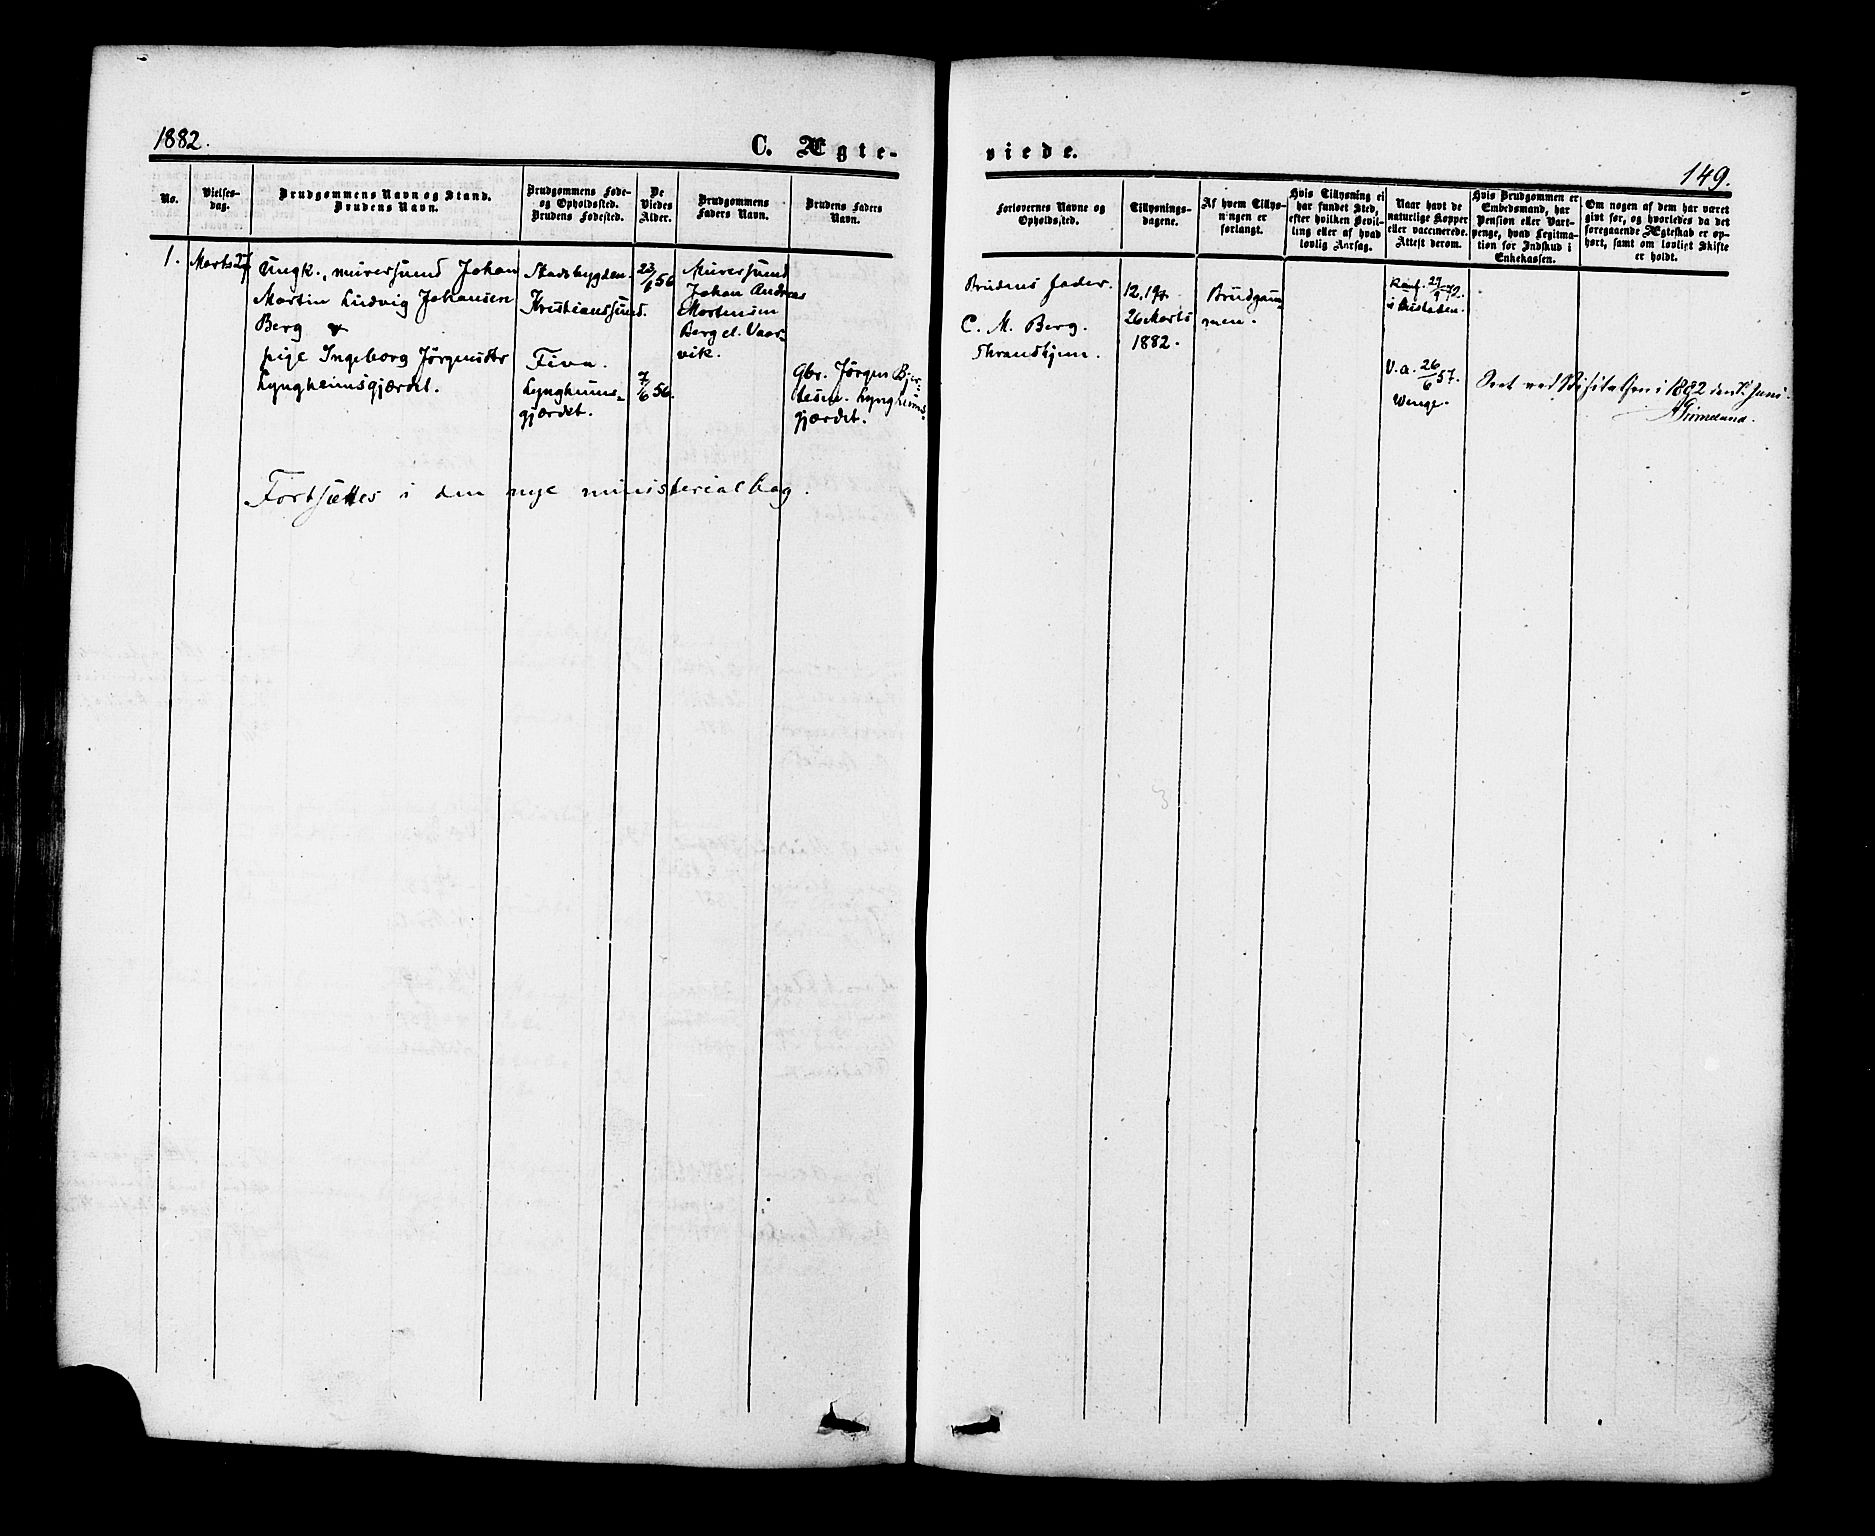 1882.
C. Ægte-
viede.
149.
No.
Vielses-
dag.
Brudgommens Navn og Stand.
Brudens Navn.
Brudgommens Føde-
og Opholdssted.
Brudens Fødested.
De
Viedes
Alder.
Brudgommens
Faders Navn.
Brudens Faders
Navn.
Forlovernes Navne og
Opholdssted.
Tillysnings-
dagene.
Af hvem Tillys-
ningen er
forlangt.
Hvis Tillysning ei
har fundet Sted,
efter hvilken Bevil-
ling eller af hvad
lovlig Aarsag.
Naar havt de
naturlige Kopper
eller vaccinerede.
Attest derom.
Hvis Brudgommen er
Embedsmand, har
Pension eller Vart-
penge, hvad Legitima-
tion for Indskud i
Enkekassen.
Om nogen af dem har været
givt før, og hvorledes da det
foregaaende Ægteskab er op-
hørt, samt om lovligt Skifte
er holdt.
1.
Marts 27
Ungk., murersvend Johan
Martin Ludvig Johansen
Berg &
pige Ingeborg Jørgensdtr
Lyngheimsgjærdet.
Stadsbygden.
Kristianssund.
Tiva.
Lyngheims-
gjærdet.
23/6 56
7/6 56.
Murersvend
Johan Andreas
Mortensen
Berg el. Vaar-
vik.
Gbr. Jørgen
Lyngheims-
gjærdet.
Brudens fader.
C. M. Berg.
Thrandhjem.
12, 19 &
26 Marts
1882.
Brudgom-
men.
29/9 72.
V. a. 26/6 57.
Wenge.
Seet ved Visitatsen i 1882 den Juni.
Fortsættes i den nye ministerialbog.